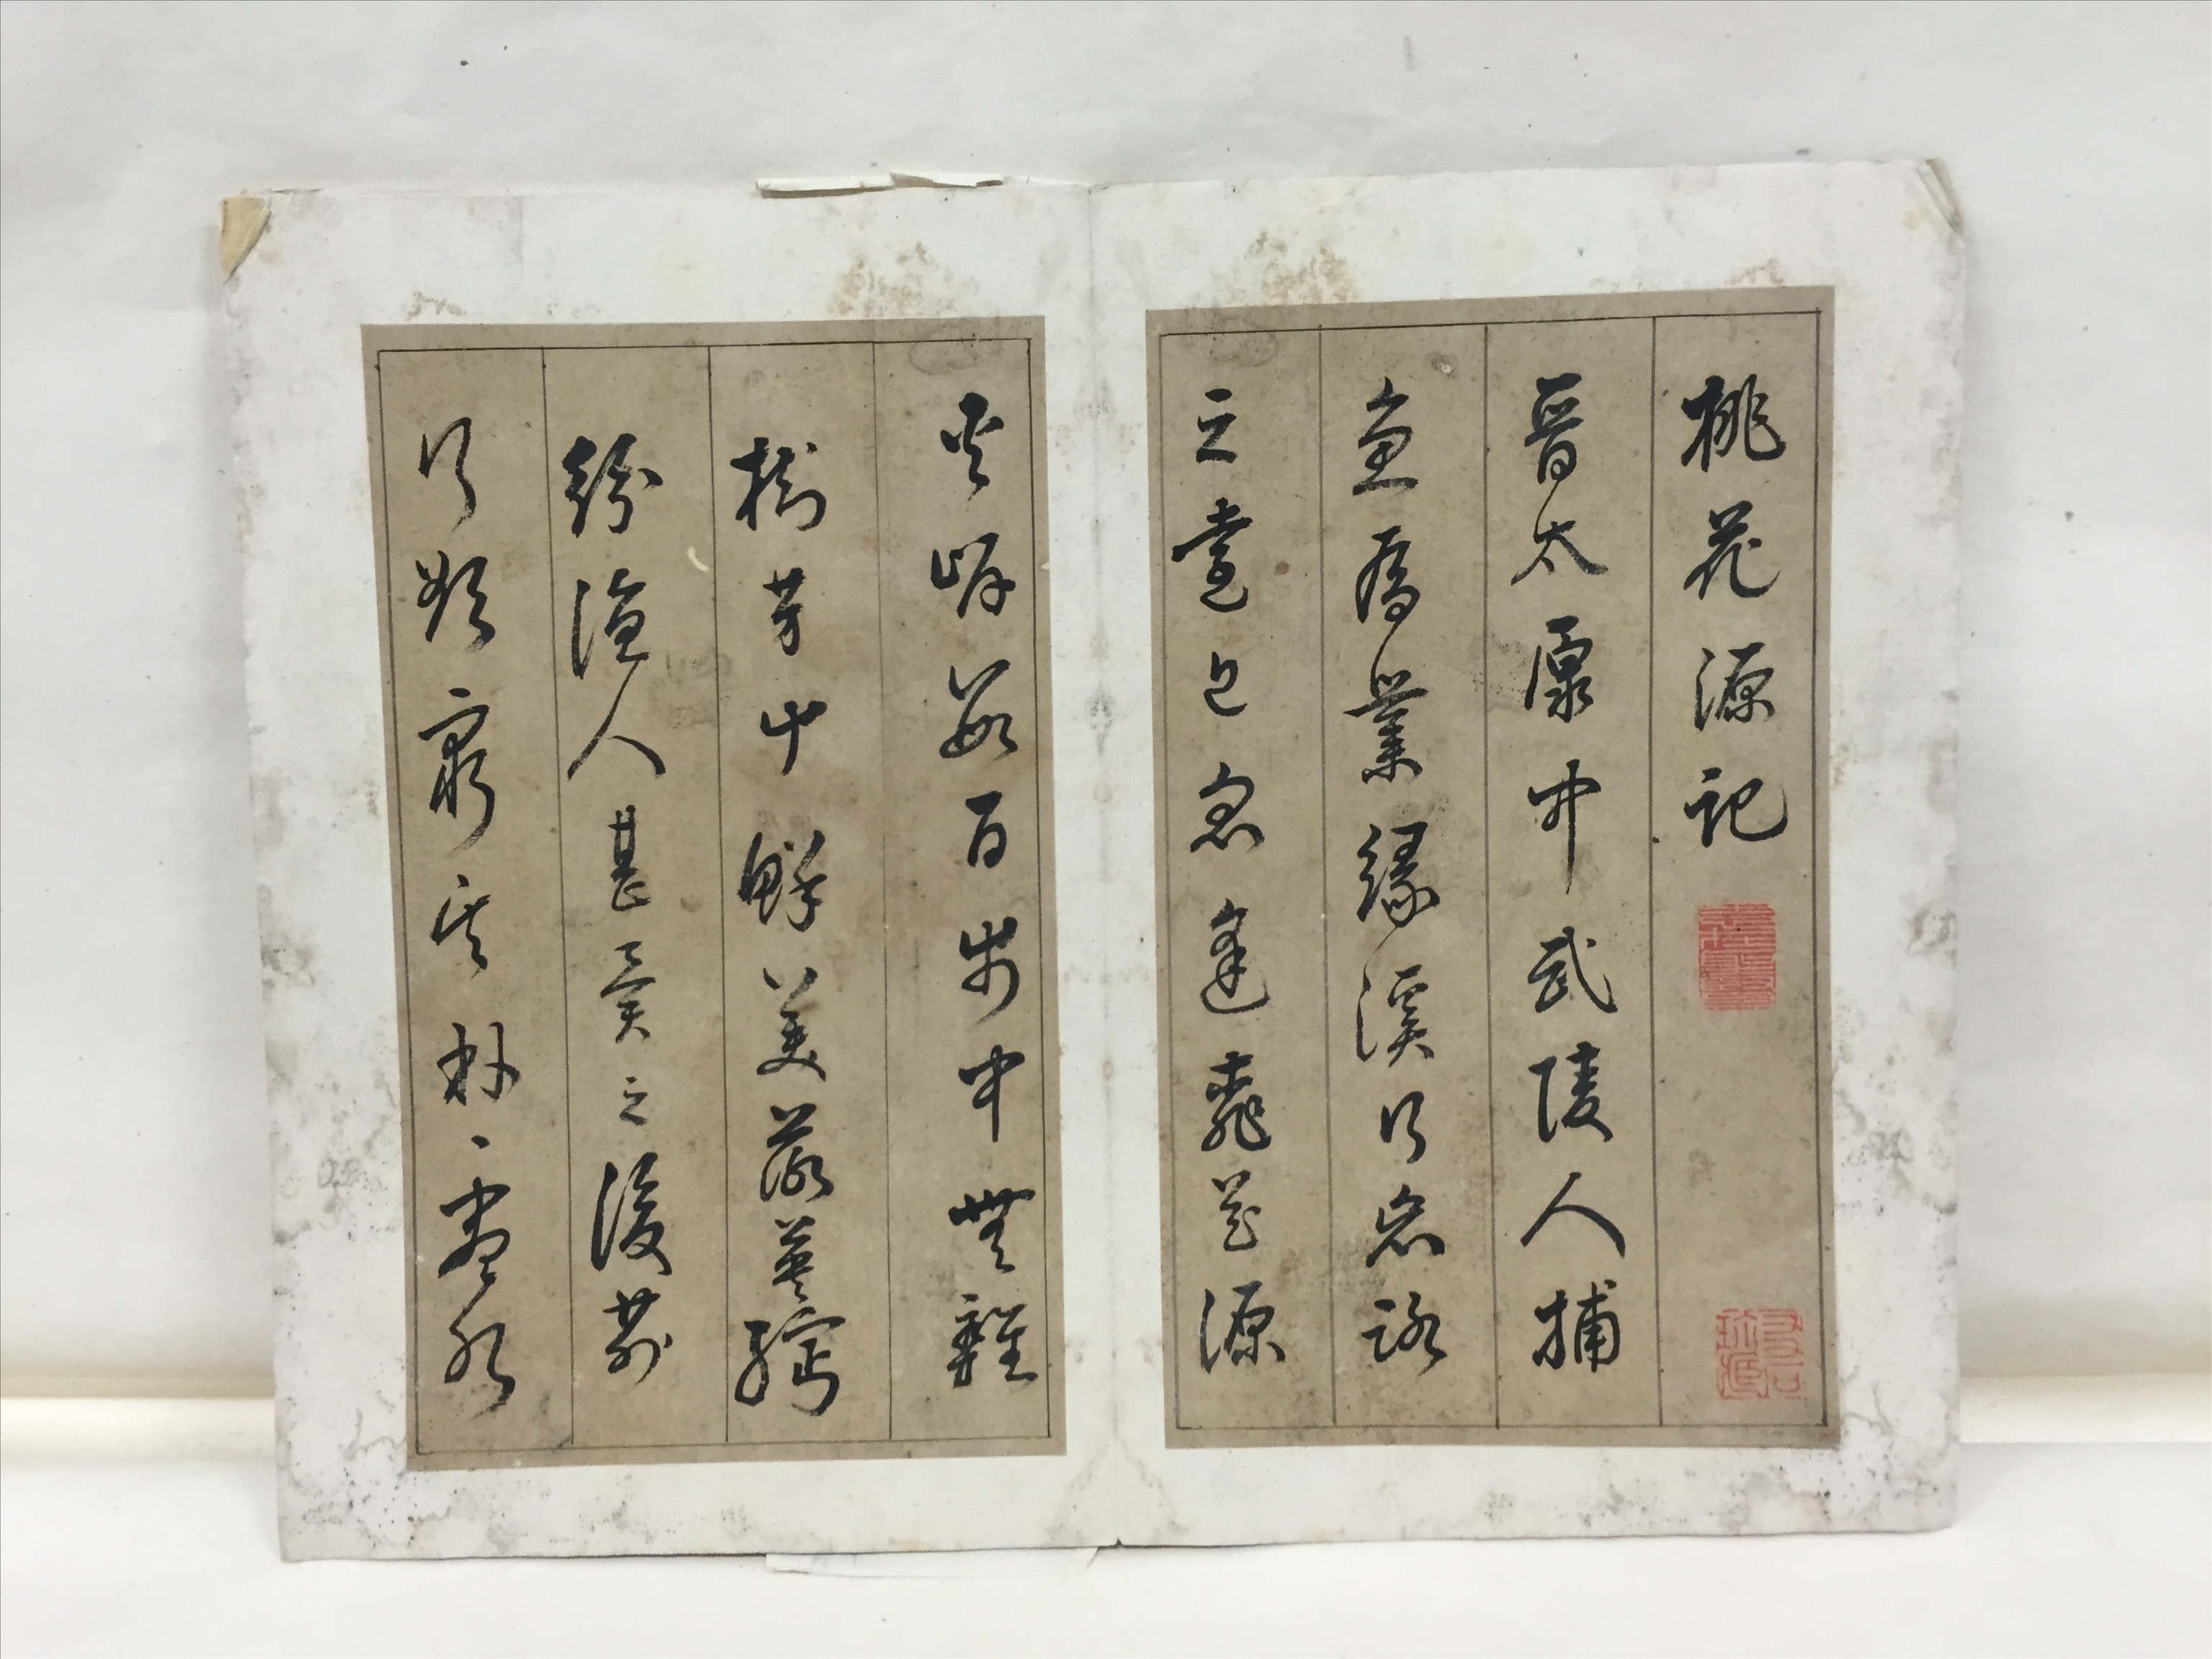 桃花源記
晉太原中武陵人捕
魚為業緣溪行忘路
之遠近忽逢桃花源
夾岸數百步中無雜
樹芳艸鮮美落英繽
紛漁人甚異之復前
行欲窮其林〻盡水